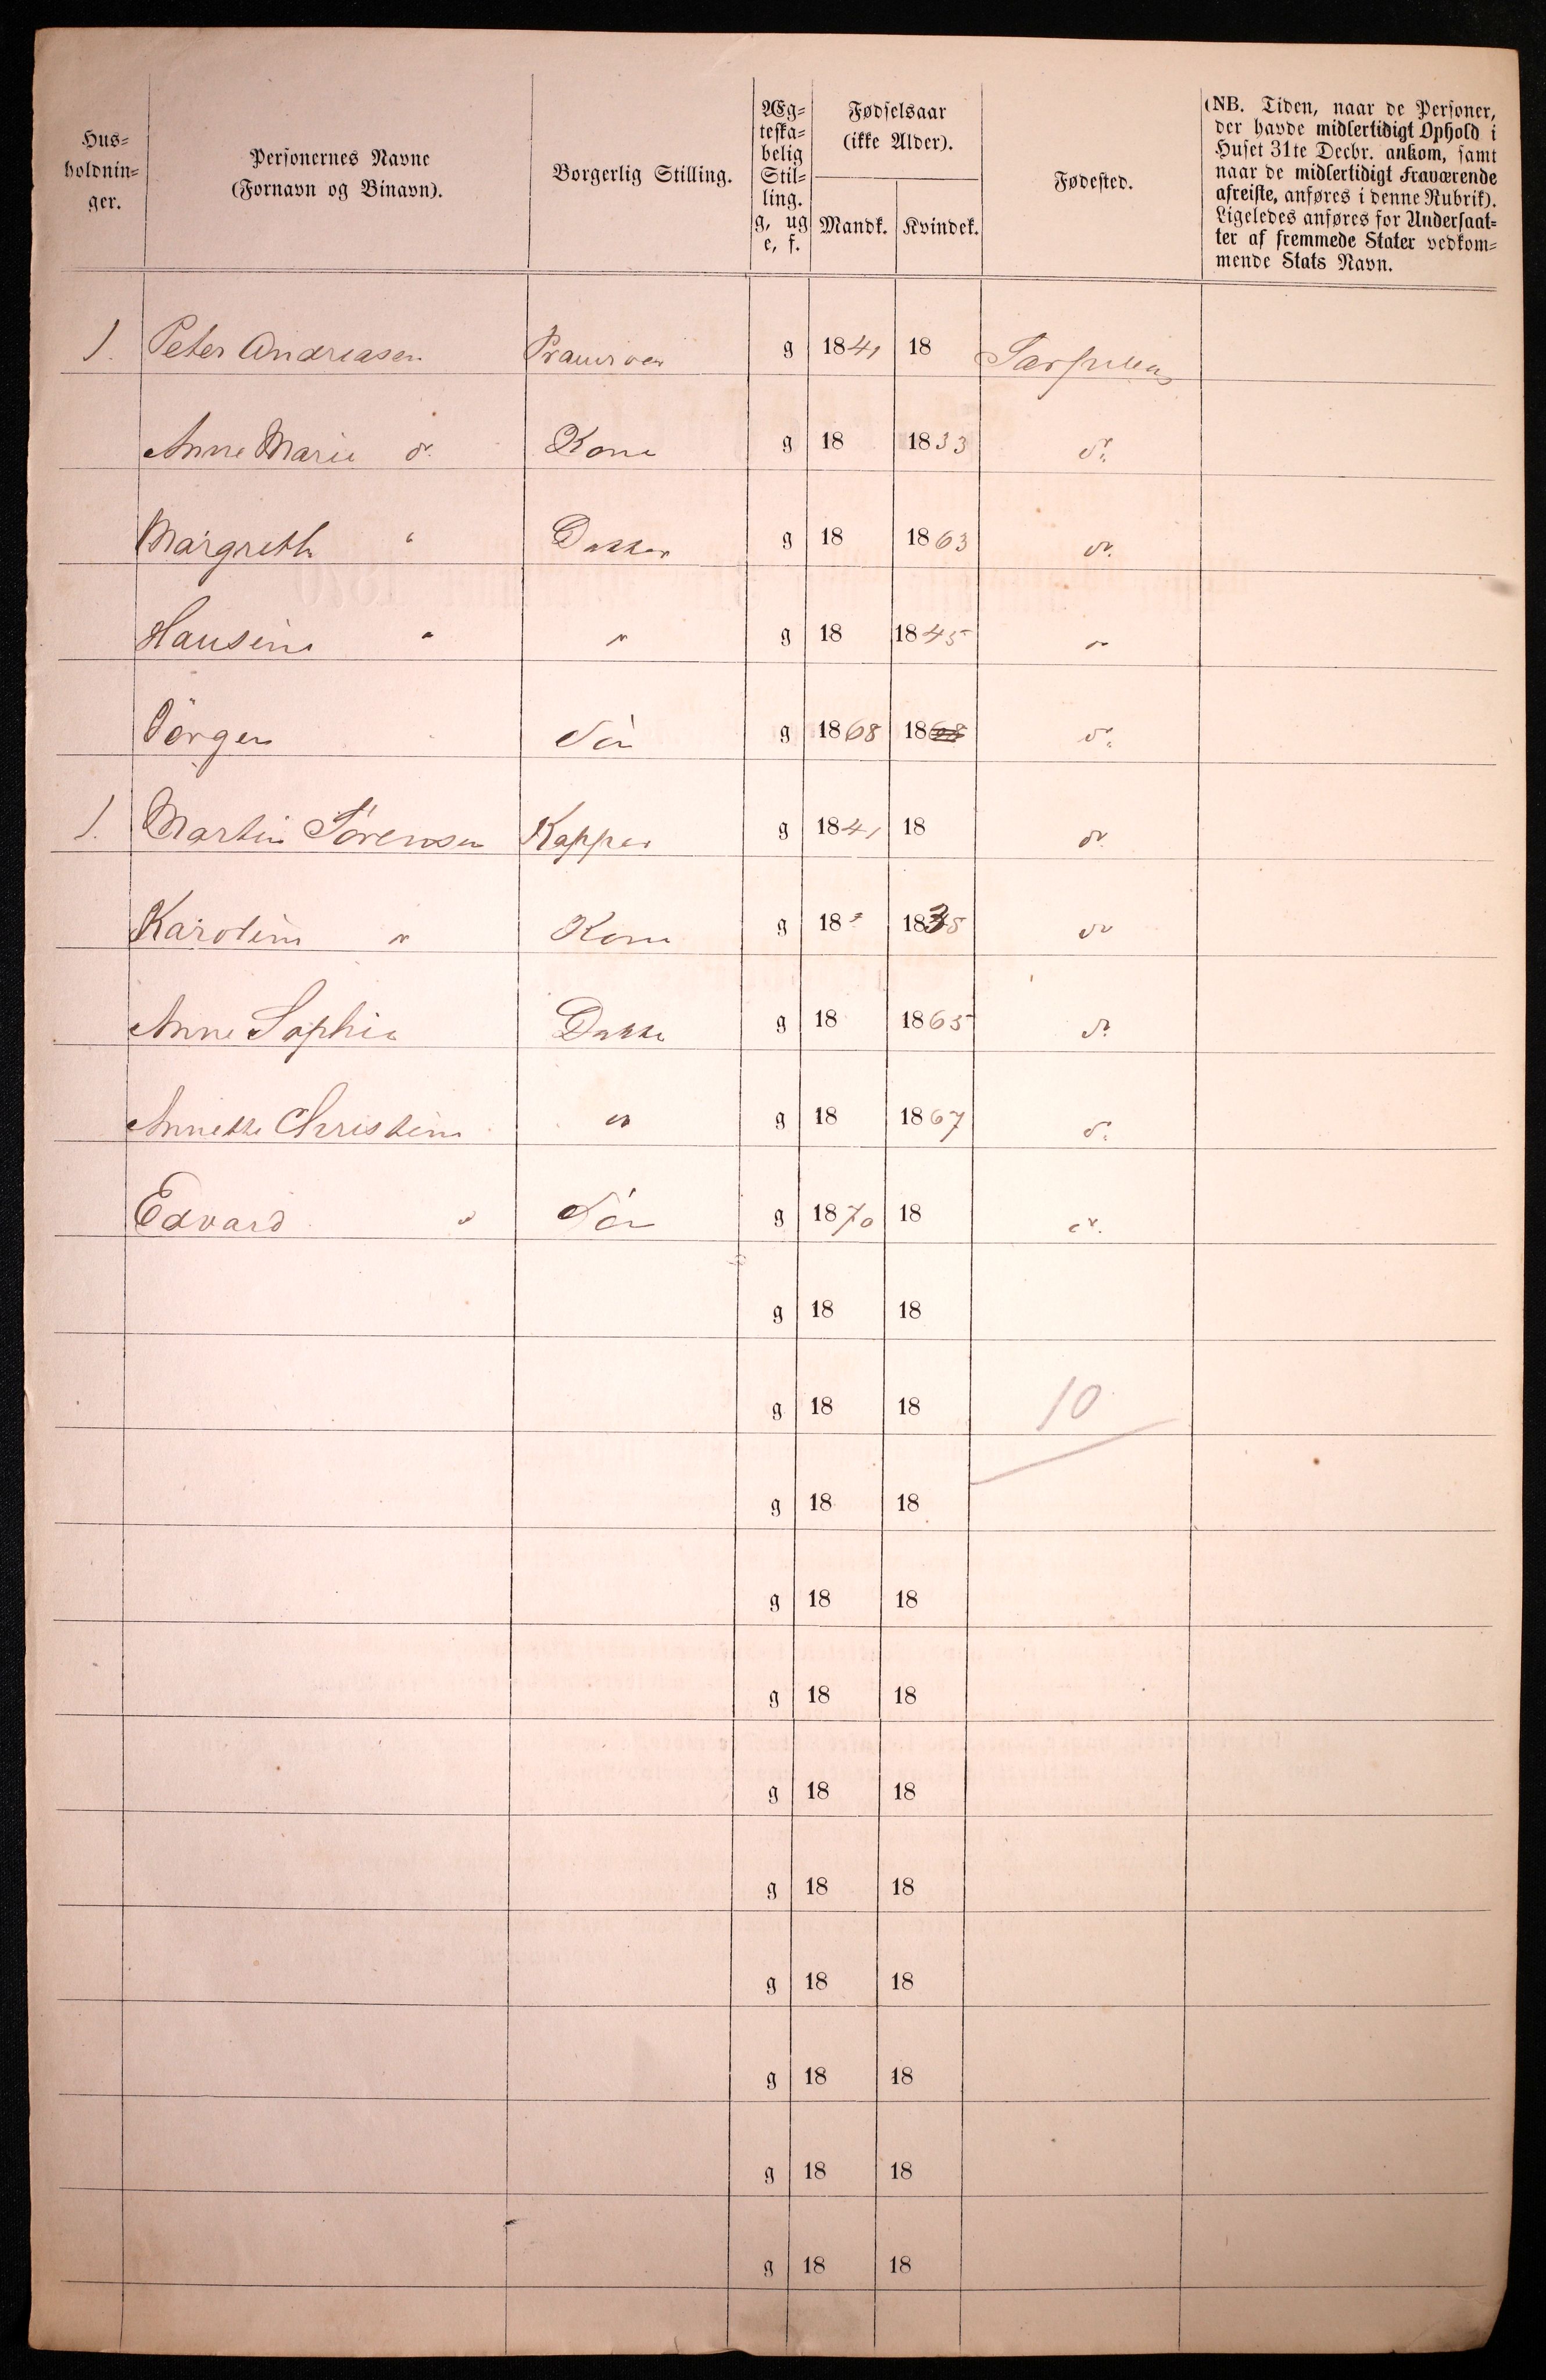 Hus=
holdnin=
ger.
Personernes Navne
(Fornavn og Binavn).
Borgerlig Stilling.
Æg=
teska=
belig
Stil=
ling.
g, ug
e, f.
Fødselsaar
(ikke Alder).
Mandk. Kvindek.
Fødested.
(NB. Tiden, naar de Personer,
der havde midlertidigt Ophold i
Huset 31te Decbr. ankom, samt
naar de midlertidigt Fraværende
afreiste, anføres i denne Rubrik).
Ligeledes anføres for Undersaat=
ter af fremmede Stater vedkom=
mende Stats Navn.
1. Peter Andreasen g 1841 18
Anne Marie do. Kone g 18 1833 do.
Margreth " Datter g 18 1863 do.
Hansine " " g 18 1845 "
Jörgen Sön g 1868 1868 do.
1. Martin Sörensen Kapper g 1841 18 do.
Karoline " Kone g 18 " 1835 do
Anne Sophie Datter g 18 1865 do.
Annette Christine " g 18 1867 do.
Edvard " Sön g 1870 18 do.
g 18 18
g 18 18 10
g 18 18
g 18 18
g 18 18
g 18 18
g 18 18
g 18 18
g 18 18
g 18 18
g 18 18